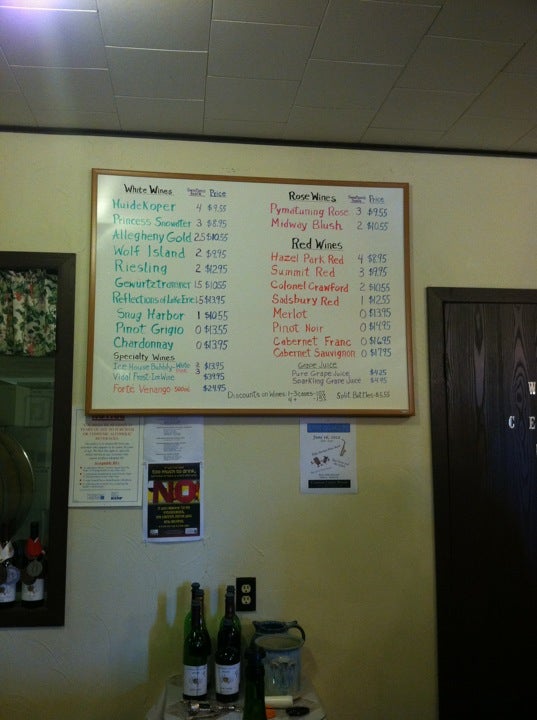 White Wines Price
Huidekoper 4 $9.55
Princess Snowater 3 $8.95
Allegheny Gold 2.5 $10.55
Wolf Island 2 $9.95
Riesling 2 $12.95
Gewurztraminer 1.5 $10.55
Reflections of Lake Erie 1.5 $13.95
Snug Harbor 1 $10.55
Pinot Grigio 0 $13.55
Chardonnay 0 $13.95
Specialty Wines
Ice House Bubbly-White $13.95
Pink 3
Vidal Frost-Ice Wine $39.95
Forte Venango 500ml $24.95
Rose Wines Price
Pymatuning Rose 3 $9.55
Midway Blush 2 $10.55
Red Wines
Hazel Park Red 4 $8.95
Summit Red 3 $9.95
Colonel Crawford 2 $10.55
Sadsbury Red 1 $12.55
Merlot 0 $13.95
Pinot Noir 0 $14.95
Cabernet Franc 0 $16.95
Cabernet Sauvignon 0 $17.95
Grape Juice
Pure Grape Juice $4.25
Sparkling Grape Juice $4.95
Discounts on Wines 1-3 cases-10%
4+ 15%
Split Bottles-$5.55
NO!
W
C E